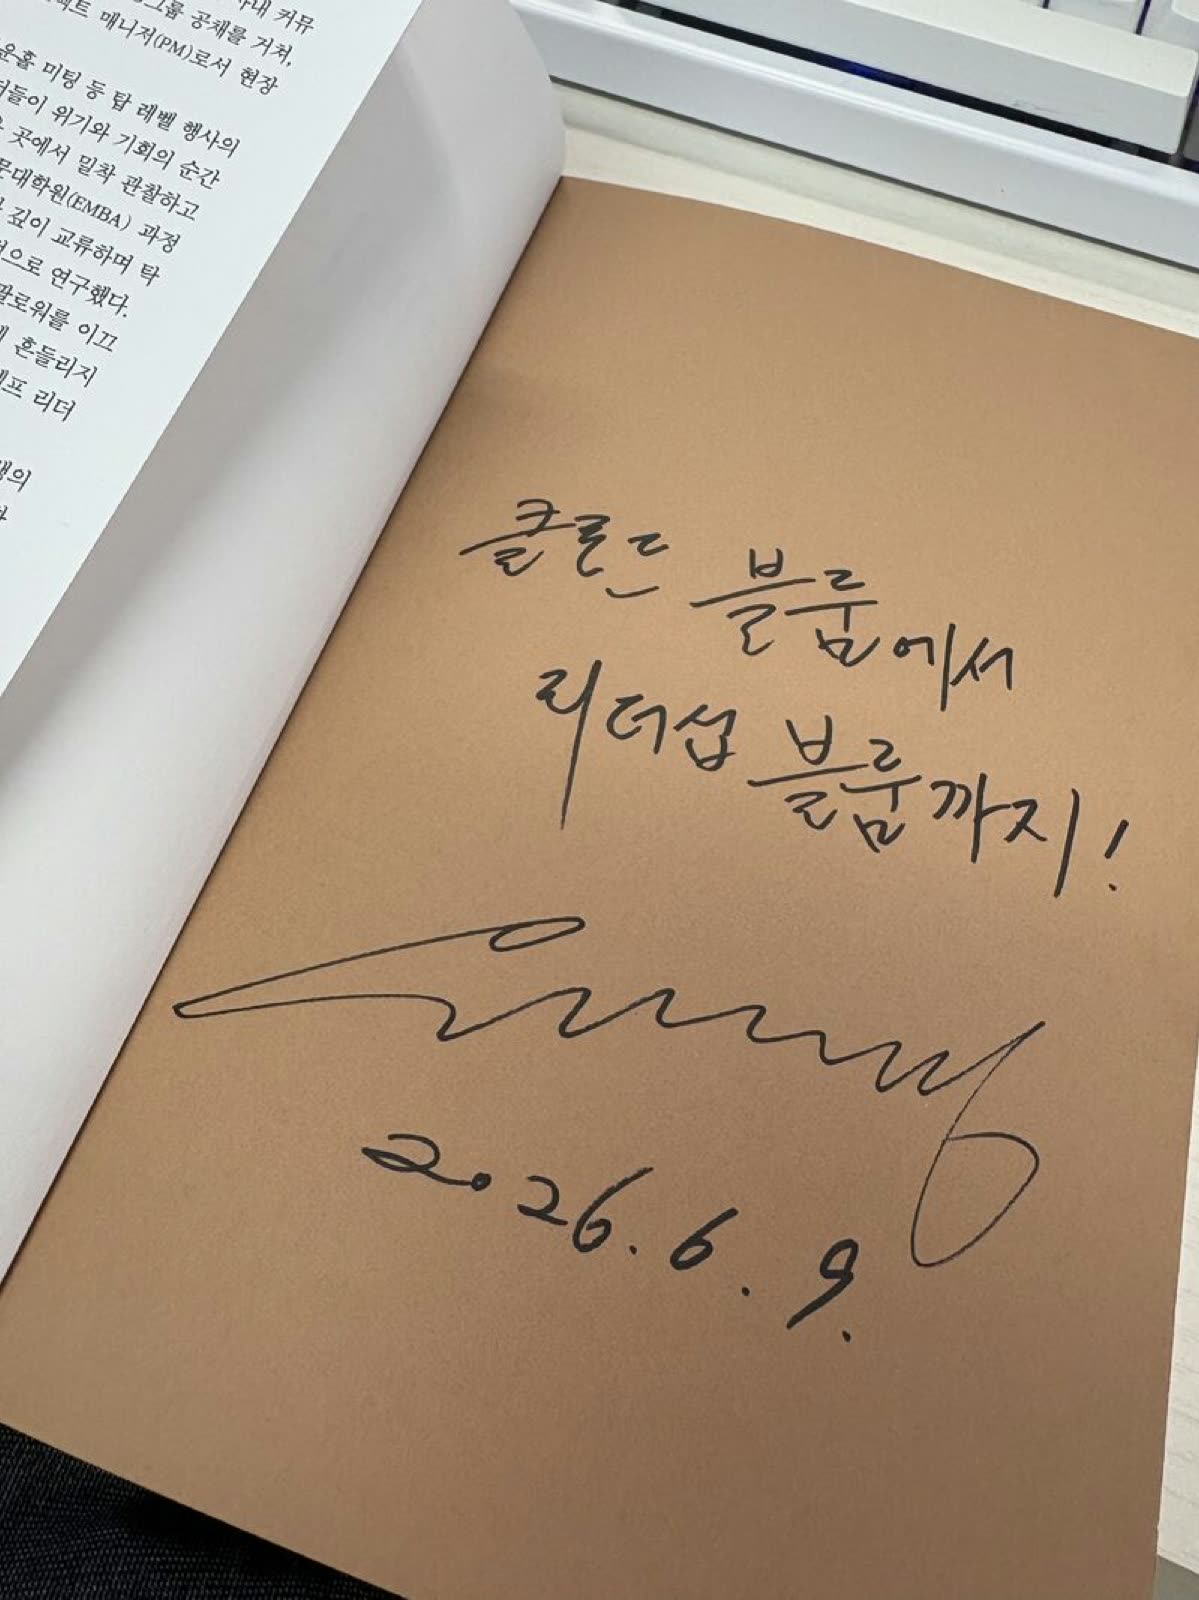 내 커뮤
그룹 공채를 거쳐,
매니저(PM)로서 현장
미팅 등 탑 레벨 행사의
더들이 위기와 기회의 순간
곳에서 밀착 관찰하고
문대학원(EMBA) 과정
깊이 교류하며 탁
적으로 연구했다.
팔로워를 이끄
흔들리지
리더
클로드 블룸에서
리더십 블룸까지!
2026. 6. 9.